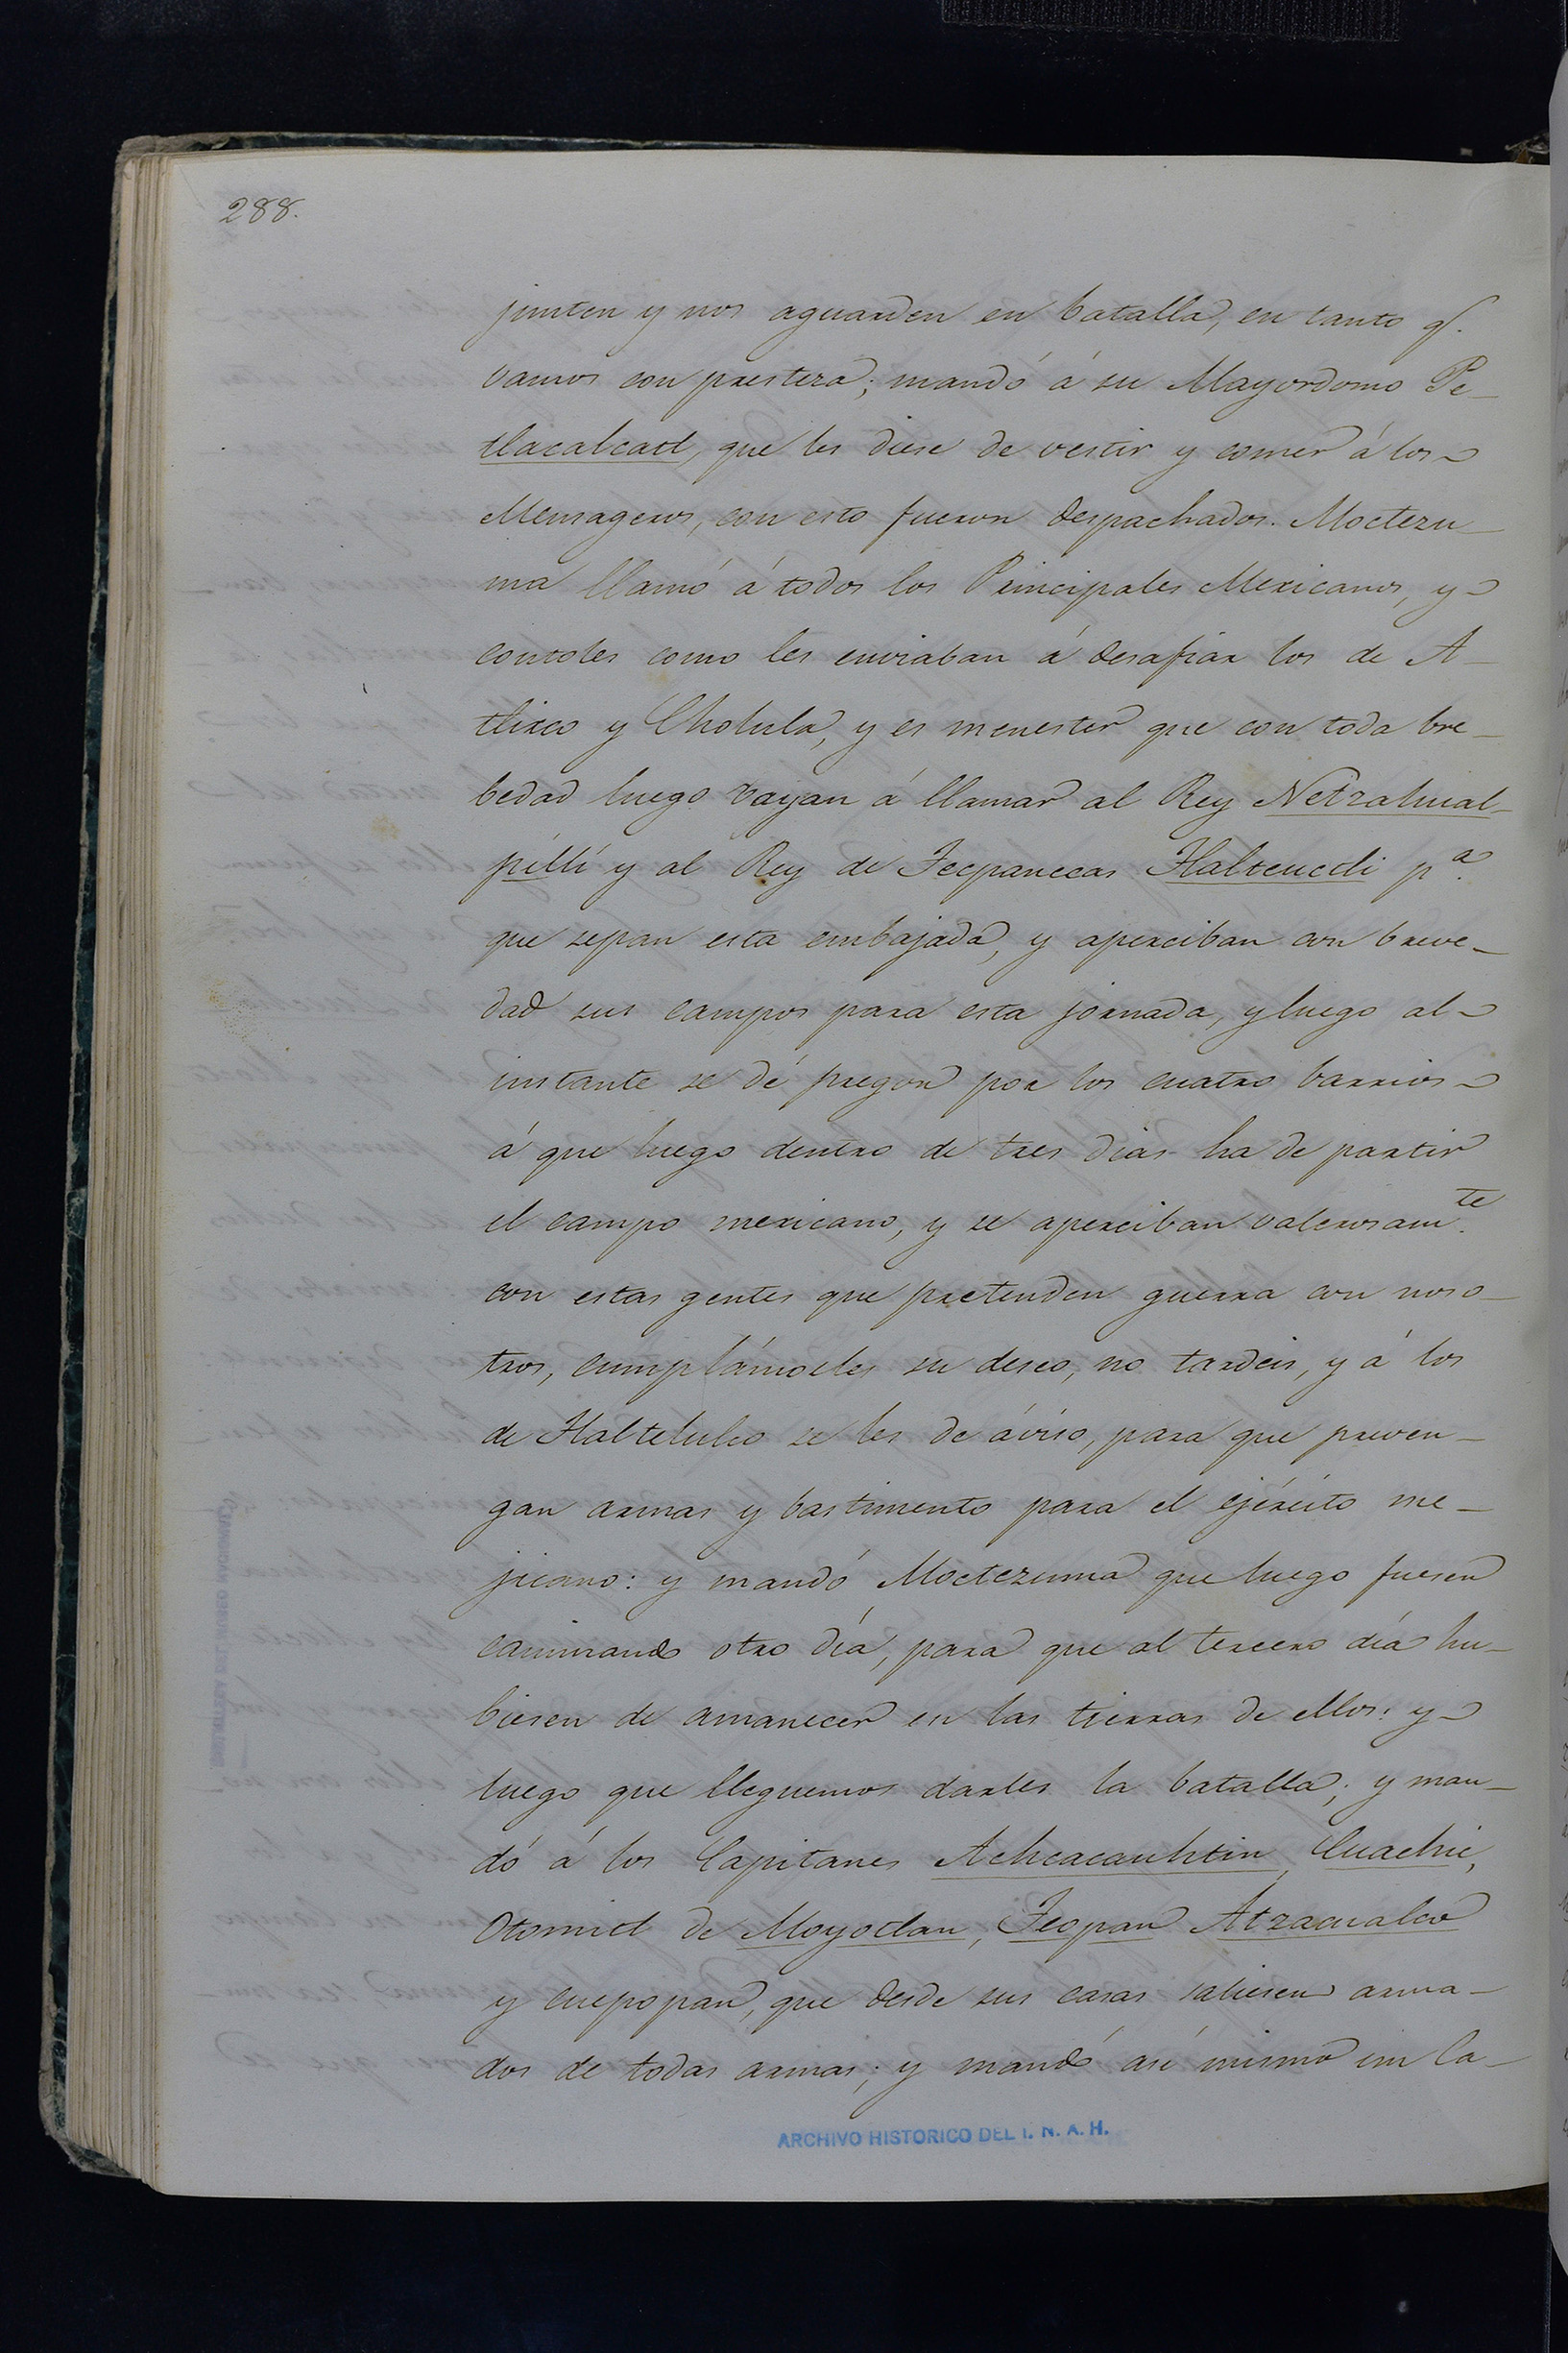 288.
junten y nos aguarden en batalla, en tanto q.
vamos con presteza; mandó á su Mayordomo Pe-
tlacalcatl, que les diese de vestir y comer á los
Mensageros, con esto fueron despachados. Moctezu-
ma llamó á todos los Principales Mexicanos, y
contoles como les enviaban á desafiar los de A-
tlixco y Cholula, y es menester que con toda bre-
bedad luego vayan á llamar al Rey Netzahual-
pilli y al Rey de Tecpanecas Tlalteuctli p.ª
que sepan esta embajada, y aperciban con breve-
dad sus campos para esta jornada, y luego al
instante se dé pregon por los cuatro barrios
á que luego dentro de tres dias ha de partir
el campo mexicano, y se aperciban valerosam.te
con estas gentes que pretenden guerra con noso-
tros, cumplámosles su deseo, no tardeis, y á los
de Tlaltelulco se les de áviso, para que preven-
gan armas y bastimento para el ejército me-
jicano: y mandó Moctezuma que luego fuesen
caminando otro día, para que al tercero día hu-
biesen de amanecer en las tierras de ellos: y
luego que lleguemos darles la batalla; y man-
dó á los Capitanes Achcacauhtin, Cuachic,
Otomitl de Moyotlan, Teopan Atzacualco
y cuepopan, que desde sus casas saliesen arma-
dos de todas armas; y mandó asi mismo im la-
ARCHIVO HISTORICO DEL I. N. A. H.